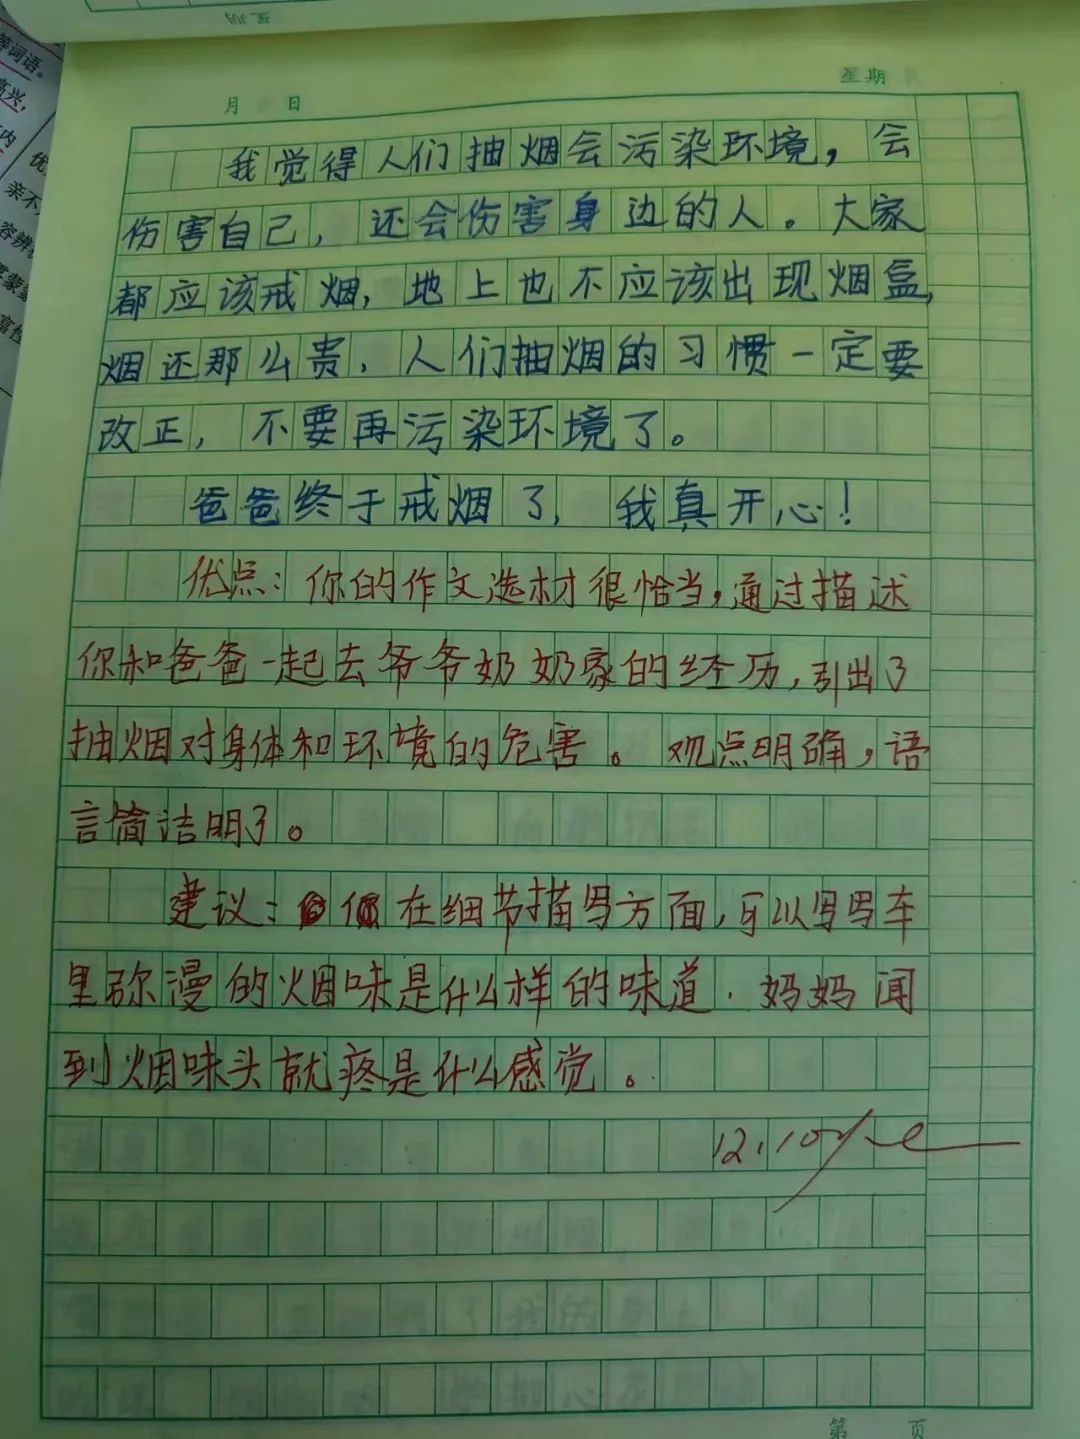 星期
月 日
我觉得人们抽烟会污染环境，会
伤害自己，还会伤害身边的人。大家
都应该戒烟，地上也不应该出现烟盒，
烟还那么贵，人们抽烟的习惯一定要
改正，不要再污染环境了。
爸爸终于戒烟了，我真开心！
优点：你的作文选材很恰当，通过描述
你和爸爸一起去爷爷奶奶家的经历，引出了
抽烟对身体和环境的危害。观点明确，语
言简洁明了。
建议：在细节描写方面，可以写写车
里弥漫的烟味是什么样的味道，妈妈闻
到烟味头就疼是什么感觉。
12.10
第 页
等词语。
高兴，
内
优
亲不
容辨